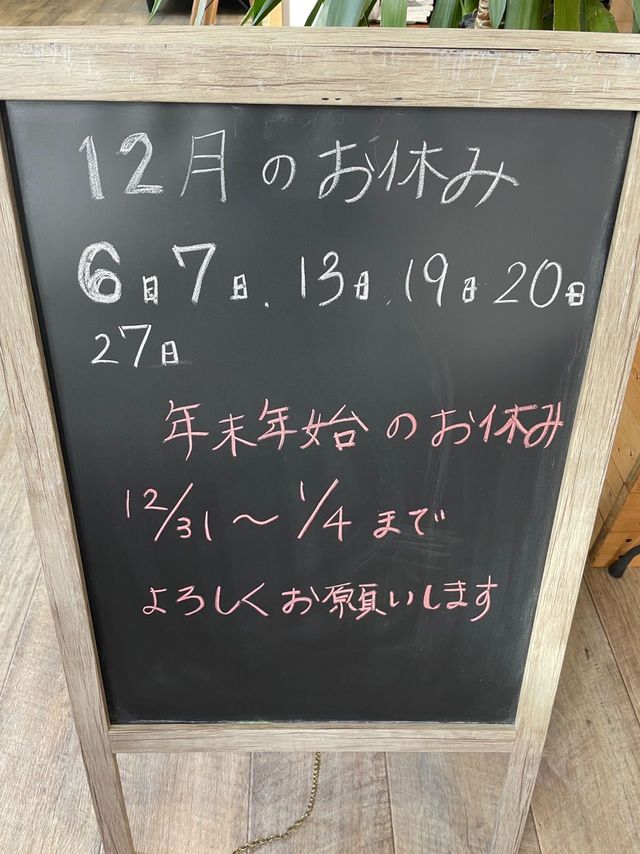 12月のお休み
6日7日、13日、19日20日
27日
年末年始のお休み
12/31〜1/4まで
よろしくお願いします